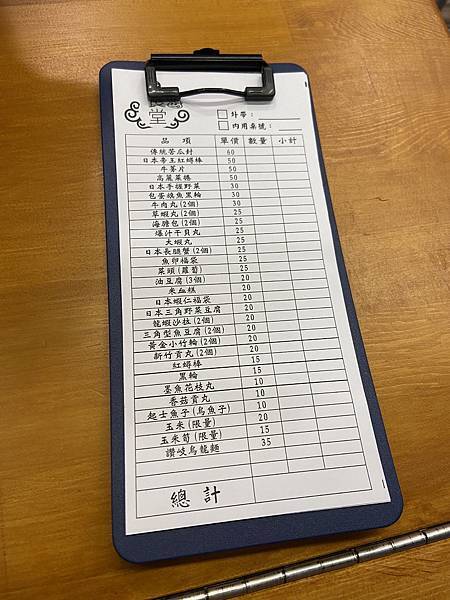 堂
外帶：
內用桌號：
品 項 單價 數量 小計
傳統苦瓜封 60
日本帝王紅蟳棒 50
牛蒡片 50
高麗菜捲 50
日本手握野菜 30
包蛋旗魚黑輪 30
牛肉丸(2個) 30
草蝦丸(2個) 25
海膽包(2個) 25
爆汁干貝丸 25
大蝦丸 25
日本長腿蟹(2個) 25
魚卵福袋 25
菜頭(蘿蔔) 25
油豆腐(3個) 20
米血糕 20
日本蝦仁福袋 20
日本三角野菜豆腐 20
龍蝦沙拉(2個) 20
三角型魚豆腐(2個) 20
黃金小竹輪(2個) 20
新竹貢丸(2個) 20
紅蟳棒 15
黑輪 15
墨魚花枝丸 10
香菇貢丸 10
起士魚子(烏魚子) 10
玉米(限量) 20
玉米筍(限量) 15
讚岐烏龍麵 35
總 計